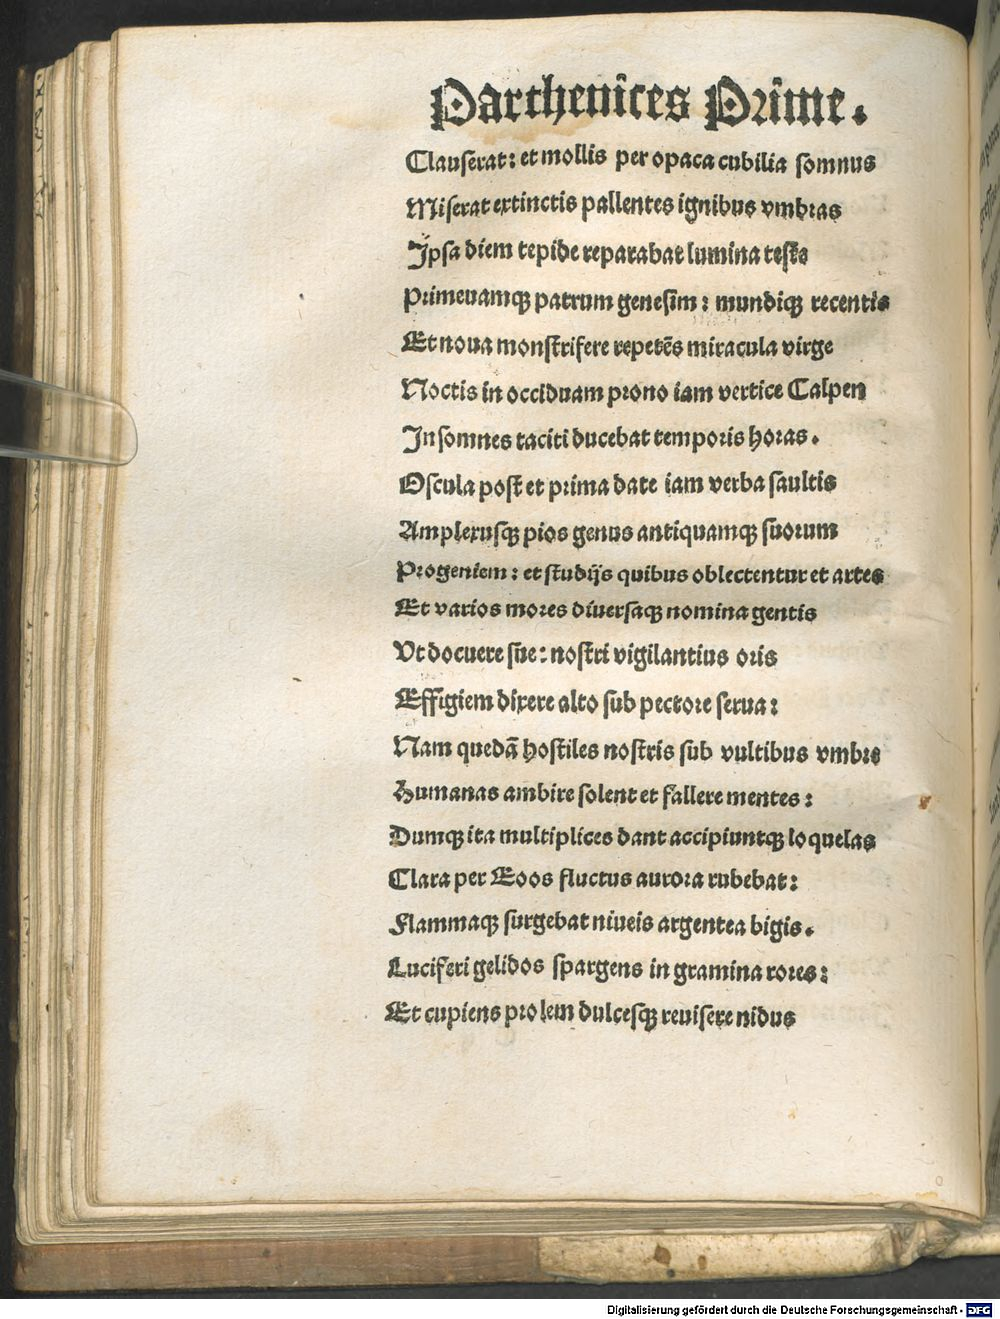 Parthenices Prime.
Clauserat: et mollis per opaca cubilia somnus
Miserat extinctis pallentes ignibus vmbras
Ipsa diem tepide reparabat lumina teste
Primeuamqꝫ patrum genesim: mundiqꝫ recentis
Et noua monstrifere repetēs miracula virge
Noctis in occiduam prono iam vertice Calpen
Insomnes taciti ducebat temporis horas.
Oscula post et prima date iam verba saultis
Amplexusqꝫ pios genus antiquamqꝫ suorum
Progeniem: et studijs quibus oblectentur et artes
Et varios mores diuersaqꝫ nomina gentis
Vt docuere sue: nostri vigilantius oris
Effigiem dixere alto sub pectore serua:
Nam quedā hostiles nostris sub vultibus vmbre
Humanas ambire solent et fallere mentes:
Dumqꝫ ita multiplices dant accipiuntqꝫ loquelas
Clara per Eoos fluctus aurora rubebat:
Flammaqꝫ surgebat niueis argentea bigis.
Luciferi gelidos spargens in gramina rores:
Et cupiens prolem dulcesqꝫ reuisere nidus
Digitalisierung gefördert durch die Deutsche Forschungsgemeinschaft - DFG